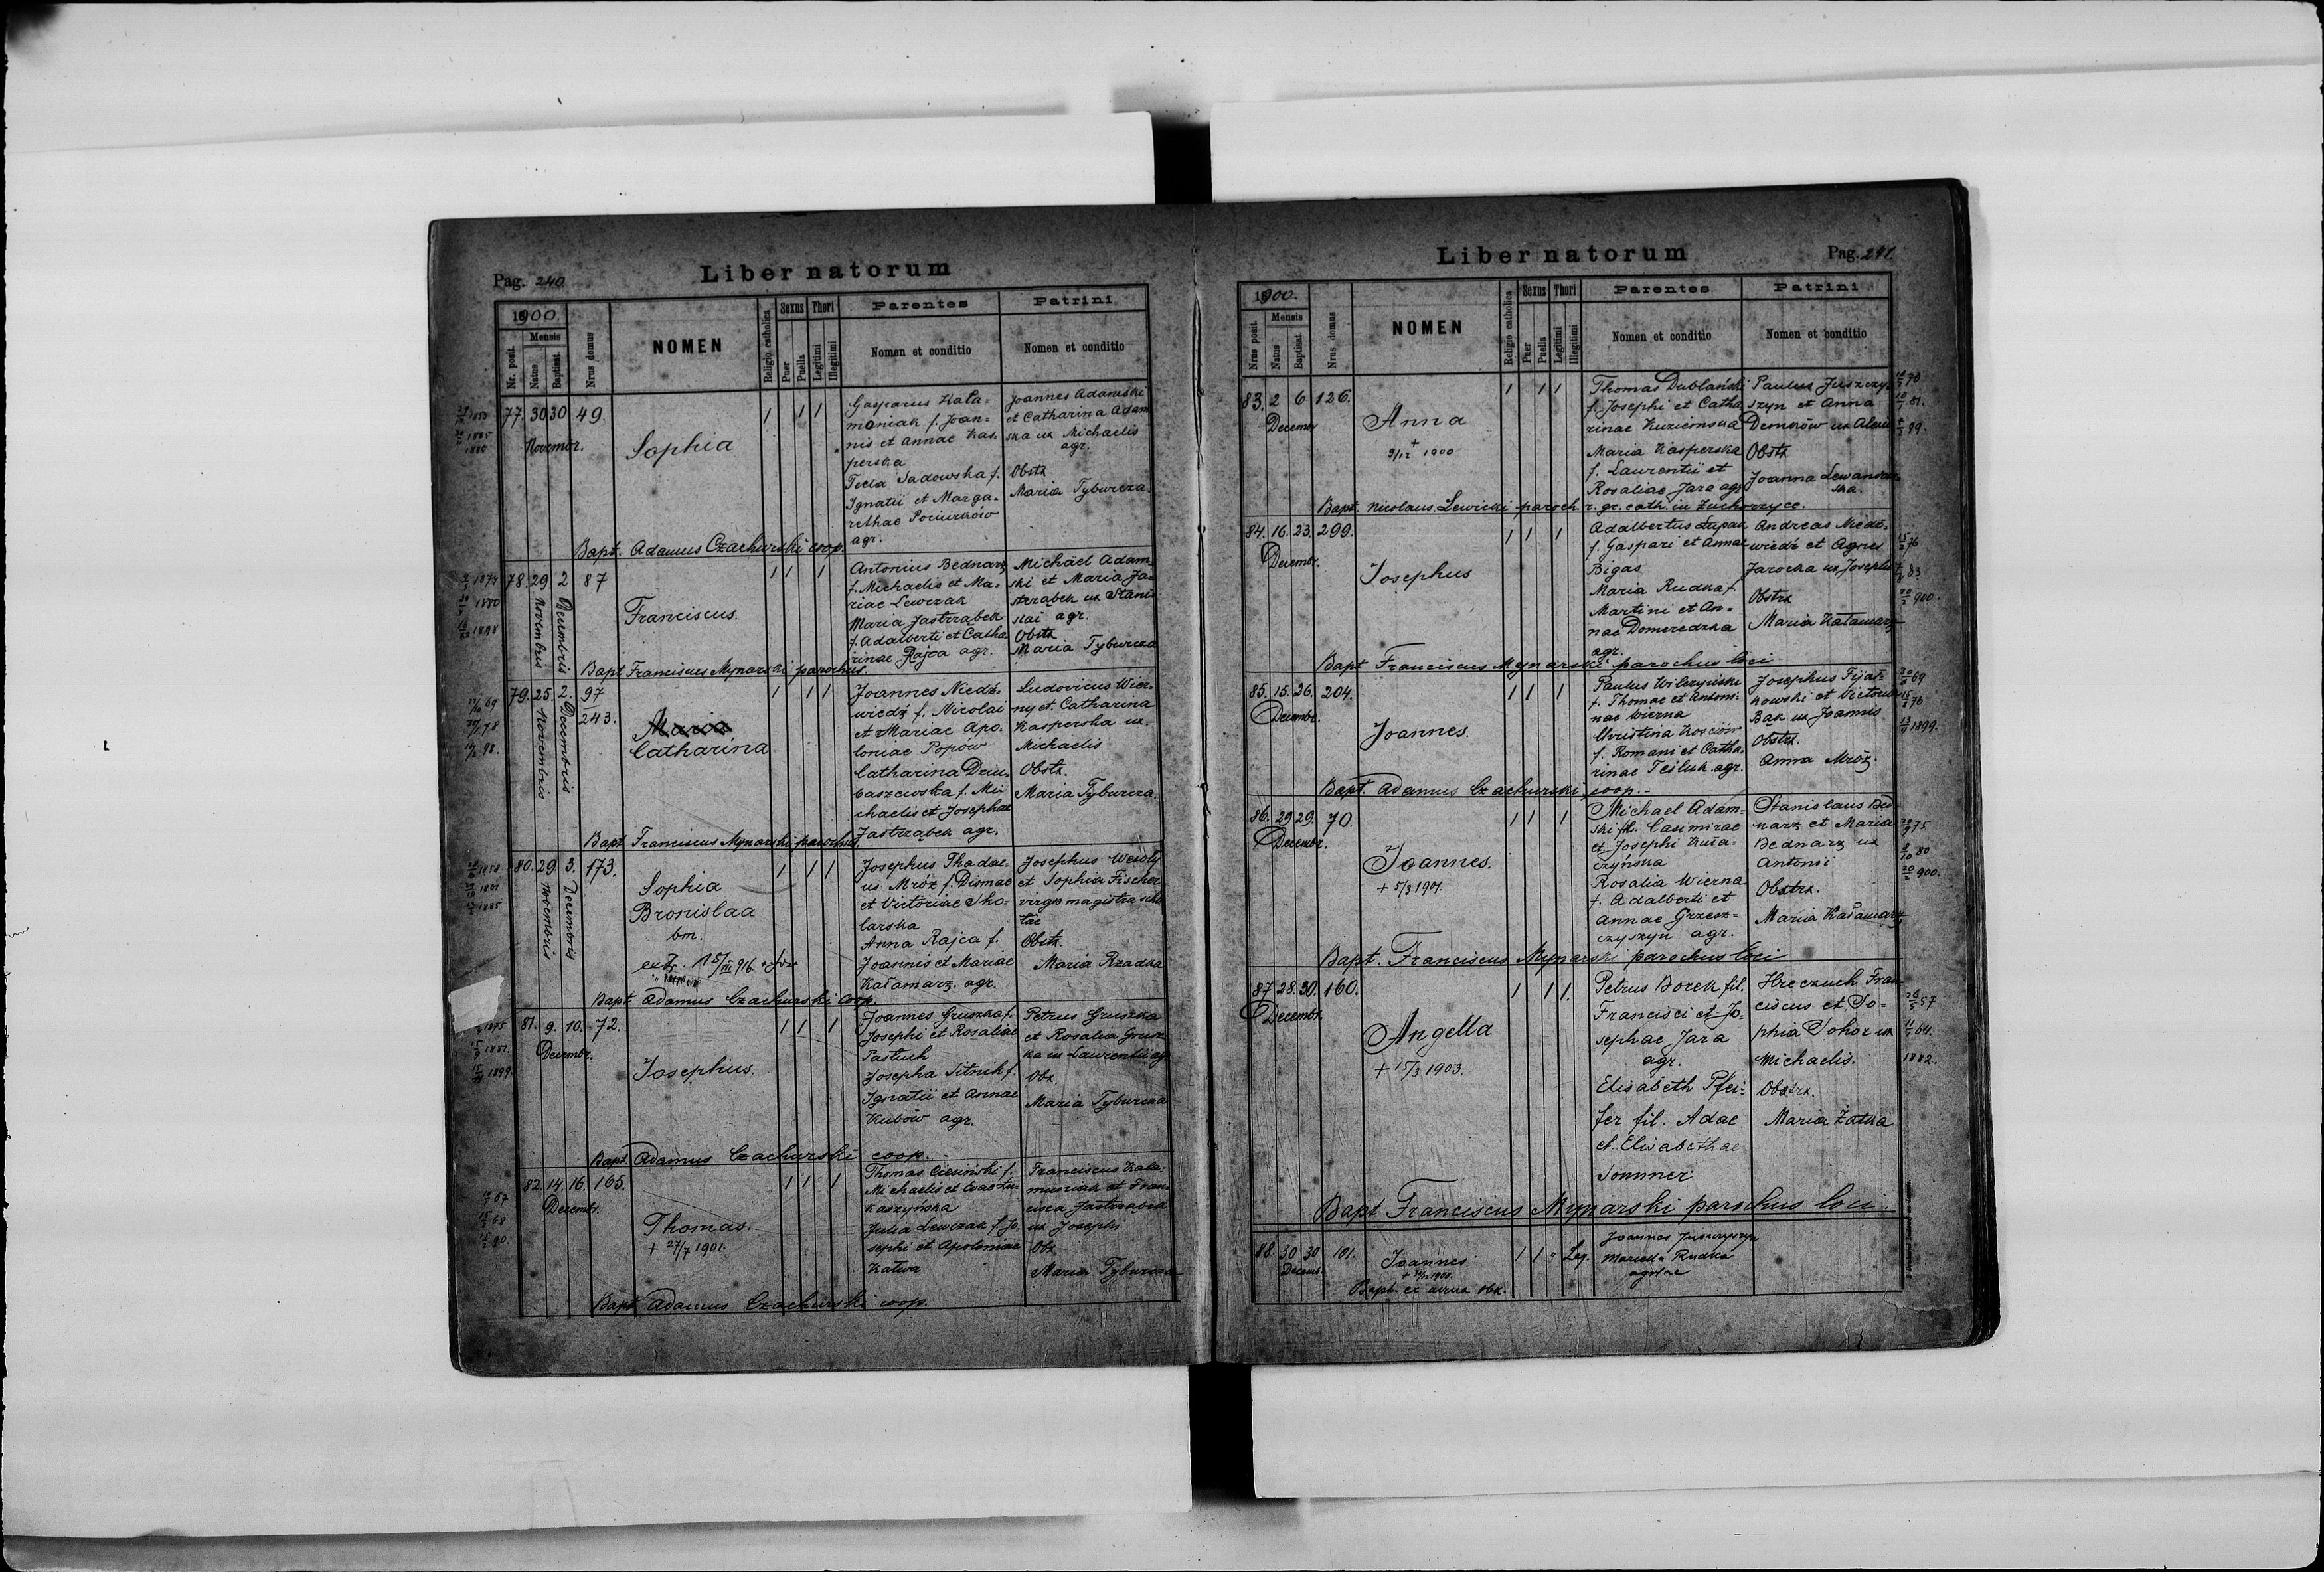 Pag. 240
Liber natorum
1900.
Mensis
Nr. posit.
Natus
Baptisat.
Nrus domus
NOMEN
Religio catholica
Sexus
Puer
Puella
Thori
Legitimi
Illegitimi
Parentes
Nomen et conditio
Patrini
Nomen et conditio
77. 30 30 49.
Novembr.
Sophia
1 1 1
Gasparus Kała-
moniak f. Joan-
nis et Annae Kas-
perska
Tecla Sadowska f.
Ignatii et Marga-
rethae
agr.
Joannes Adamski
et Catharina Adam
ska ux Michaelis
agr.
Obstx
Maria Tyburcza.
Bapt. Adamus Czachurski coop.
78. 29 2 87
Novembris
Decembris
Franciscus.
1 1 1
Antonius Bednarz
f. Michaelis et Ma-
riae Lewczak
Maria Jastrząbek
f. Adalberti et Catha
rinae Rajca agr.
Michael Adam
ski et Maria Ja-
strząbek ux Stani
slai agr.
Obstx
Maria Tyburcza
Bapt Franciscus Mynarski parochus.
79. 25. 2. 97
243.
Novembris
Decembris
Maria
Catharina
1 1 1
Joannes Niedź-
wiedź f. Nicolai
et Mariae Apo-
loniae Popow
Catharina Dziu-
baszewska f. Mi-
chaelis et Josephae
Jastrząbek agr.
Ludovicus Wier-
ny et Catharina
Kasperska ux.
Michaelis
Obstx.
Maria Tyburcza.
Bapt Franciscus Mynarski parochus.
80. 29. 3. 173.
Novembris
Decembris
Sophia
Bronislaa
bm.
1 1 1
Josephus Thadae-
us Mróz f. Dismae
et Victoriae Sko-
larska
Anna Rajca f.
Joannis et Mariae
Kałamarz. agr.
Josephus Wesoły
et Sophia Fischer
virgo magistra scho
lae
Obstx.
Maria Rzadka
Bapt Adamus Czachurski coop.
81. 9. 10. 72.
Decembr.
Josephus.
1 1 1
Joannes Gruszka f.
Josephi et Rosaliae
Pastuch
Josepha Sitnik f.
Ignatii et Annae
Kubów agr.
Petrus Gruszka
et Rosalia Grusz
ka ux Laurentii ag.
Obx
Maria Tyburcza
Bapt Adamus Czachurski coop.
82. 14. 16. 165.
Decembr.
Thomas.
+ 27/7 1901.
1 1 1
Thomas Ciesiński f.
Michaelis et Evae Łu-
kaszyńska
Julia Lewczak f. Jo-
sephi et Apoloniae
Katwa
Franciscus Kała-
muniak et Fran-
cisca Jastrząbek
ux Josephi
Obx
Maria Tyburcza
Bapt Adamus Czachurski coop.
Liber natorum
Pag. 241.
1900.
Mensis
Nrus posit.
Natus
Baptisat.
Nrus domus
NOMEN
Religio catholica
Sexus
Puer
Puella
Thori
Legitimi
Illegitimi
Parentes
Nomen et conditio
Patrini
Nomen et conditio
83. 2 6 126.
Decembr
Anna
+
9/12 1900
1 1 1
Thomas Dublański
f. Josephi et Catha
rinae Kuziemska
Maria Kasperska
f. Laurentii et
Rosaliae Jara agr
Paulus Juszczy-
szyn et Anna
Demków ux Alexii
Obstx
Joanna Lewandow
ska.
Bapt. Nicolaus Lewicki paroch. r. gr. cath. in Zuchorzyce.
84. 16. 23. 299.
Decembr.
Josephus
1 1 1
Adalbertus Łupak
f. Gaspari et Annae
Bigas
Maria Rudka f.
Martini et An-
nae Domeredzka
agr.
Andreas Niedź-
wiedź et Agnes
Jarocka ux Josephi
Obstrx
Maria Kałamarz
Bapt Franciscus Mynarski parochus loci
85. 15. 26. 204.
Decembr.
Joannes.
1 1 1
Paulus Wilczyński
f. Thomae et Antoni-
nae Wierna
Christina Kościów
f. Romani et Catha-
rinae Teśluk agr.
Josephus Fijał-
kowski et Victoria
Bąk ux Joannis
Obstrx.
Anna Mróz.
Bapt. Adamus Czachurski, coop.-
86. 29 29. 70.
Decembr.
Joannes.
+ 5/3 1901.
1 1 1
Michael Adam-
ski fil. Casimirae
et Josephi Kuła-
czyńska
Rosalia Wierna
f. Adalberti et
Annae Grzesz-
czyszyn agr.
Stanislaus Bed
narz et Maria
Bednarz ux
Antonii
Obstrx.
Maria Kałamarz
Bapt. Franciscus Mynarski parochus loci
87. 28. 30. 160.
Decembr.
Angella
+ 15/3 1903.
1 1 1.
Petrus Borek fil.
Francisci et Jo-
sephae Jara
agr.
Elisabeth Pfei-
fer fil. Adae
et Elisabethae
Sommer
Hreczuch Fran
ciscus et So-
phia Tohor ux
Michaelis.
Obstrx.
Maria Żatka
Bapt Franciscus Mynarski parochus loci.
88. 30 30 101.
Decemb.
Joannes
1 1 " Leg.
Joannes Juszczyszyn
Mariella Rudka
agolae
Bapt. ex aqua obx.